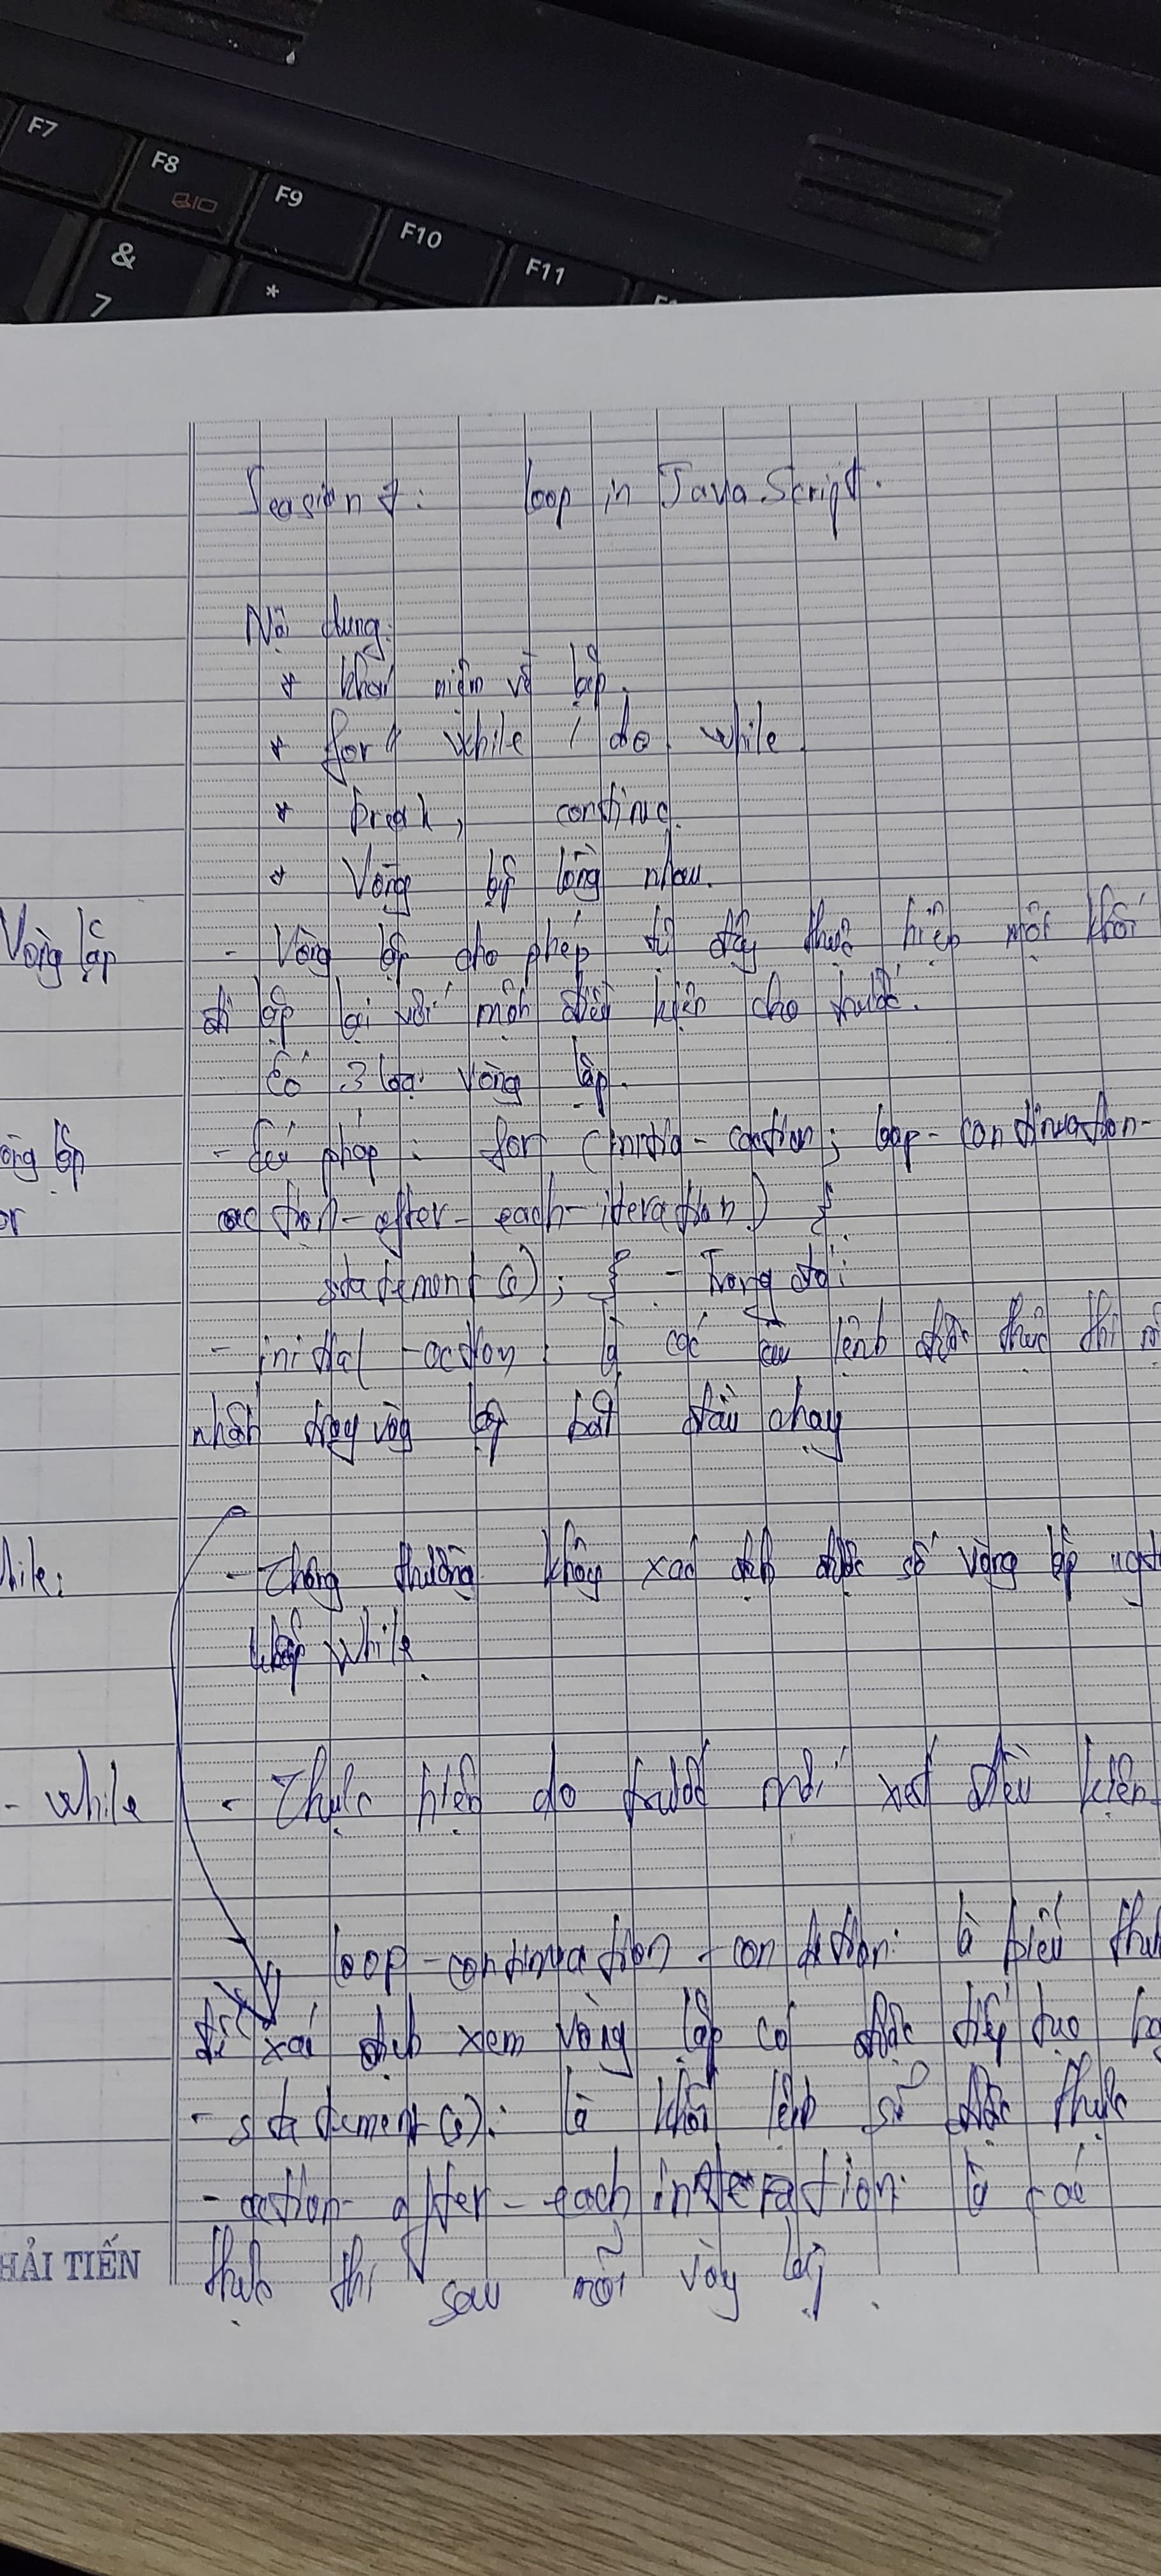 F7
F8
F9
F10
F11
&
7
*
Session 7: loop in JavaScript.
Nội dung:
* khái niệm về lặp.
* for, while, do while
* break, continue.
* Vòng lặp lồng nhau.
Vòng lặp - Vòng lặp cho phép thực hiện một khối
lặp lại với một điều kiện cho trước.
Có 3 loại vòng lặp.
lặp - Cú pháp: for (initia-conation; loop-continuation-
action-after-each-iteration) {
statement(s); } - Trong đó:
- initial-action: là các câu lệnh được thực thi
nhất vòng lặp bắt đầu chạy
- Thông thường không xác định được số vòng lặp
while
- while - Thực hiện do trước mới xét điều kiện
loop-continuation-condition: là biểu
để xác định xem vòng lặp có được tiếp tục
- statement(s): là khối lệnh sẽ được thực
- action-after-each interation: là các
thực thi sau mỗi vòng lặp.
HẢI TIẾN